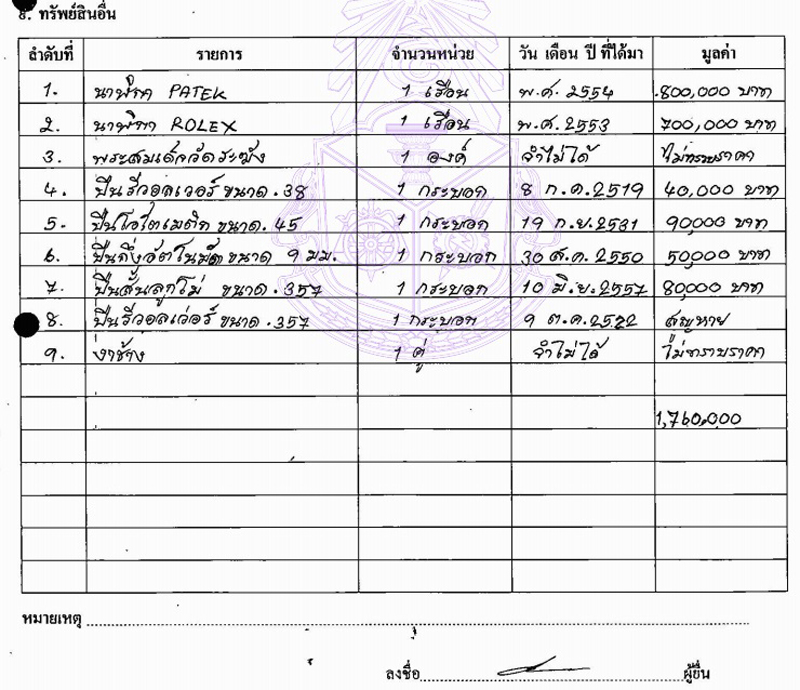 8. ทรัพย์สินอื่น
ลำดับที่ รายการ จำนวนหน่วย วัน เดือน ปี ที่ได้มา มูลค่า
1. นาฬิกา PATEK 1 เรือน พ.ศ. 2554 800,000 บาท
2. นาฬิกา ROLEX 1 เรือน พ.ศ. 2553 700,000 บาท
3. พระสมเด็จวัดระฆัง 1 องค์ จำไม่ได้ ไม่ทราบราคา
4. ปืนรีวอลเวอร์ ขนาด .38 1 กระบอก 8 ก.ค. 2519 40,000 บาท
5. ปืนโอโตเมติก ขนาด .45 1 กระบอก 19 ก.ย. 2531 90,000 บาท
6. ปืนกึ่งอัตโนมัติ ขนาด 9 มม. 1 กระบอก 30 ส.ค. 2550 50,000 บาท
7. ปืนสั้นลูกโม่ ขนาด .357 1 กระบอก 10 มิ.ย. 2557 80,000 บาท
8. ปืนรีวอลเว่อร์ ขนาด .357 1 กระบอก 9 ต.ค. 2522 สูญหาย
9. งาช้าง 1 คู่ จำไม่ได้ ไม่ทราบราคา
1,760,000
หมายเหตุ
ลงชื่อ ผู้ยื่น